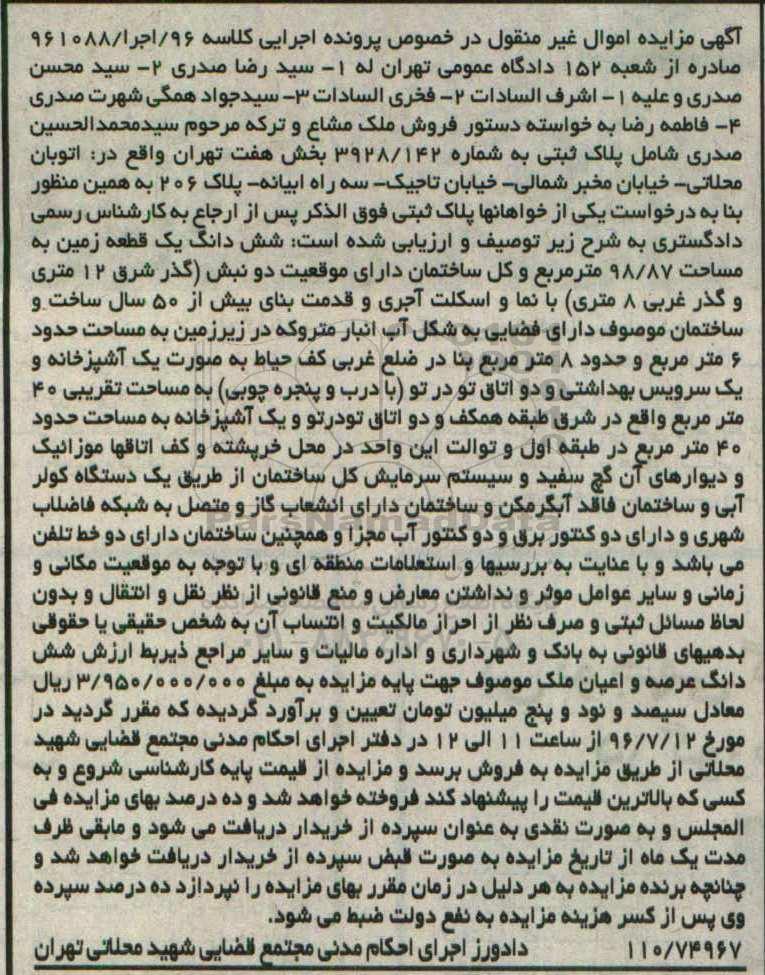 آگهی مزایده اموال غیر منقول در خصوص پرونده اجرایی کلاسه ۹۶/اجرا/۹۶۱۰۸۸
صادره از شعبه ۱۵۲ دادگاه عمومی تهران له ۱- سید رضا صدری ۲- سید محسن
صدری و علیه ۱- اشرف السادات ۲- فخری السادات ۳- سیدجواد همگی شهرت صدری
۴- فاطمه رضا به خواسته دستور فروش ملک مشاع و ترکه مرحوم سیدمحمدالحسین
صدری شامل پلاک ثبتی به شماره ۳۹۲۸/۱۴۲ بخش هفت تهران واقع در: اتوبان
محلاتی- خیابان مخبر شمالی- خیابان تاجیک- سه راه ابیانه- پلاک ۲۰۶ به همین منظور
بنا به درخواست یکی از خواهانها پلاک ثبتی فوق الذکر پس از ارجاع به کارشناس رسمی
دادگستری به شرح زیر توصیف و ارزیابی شده است: شش دانگ یک قطعه زمین به
مساحت ۹۸/۸۷ مترمربع و کل ساختمان دارای موقعیت دو نبش (گذر شرق ۱۲ متری
و گذر غربی ۸ متری) با نما و اسکلت آجری و قدمت بنای بیش از ۵۰ سال ساخت و
ساختمان موصوف دارای فضایی به شکل آب انبار متروکه در زیرزمین به مساحت حدود
۶ متر مربع و حدود ۸ متر مربع بنا در ضلع غربی کف حیاط به صورت یک آشپزخانه و
یک سرویس بهداشتی و دو اتاق تو در تو (با درب و پنجره چوبی) به مساحت تقریبی ۴۰
متر مربع واقع در شرق طبقه همکف و دو اتاق تودرتو و یک آشپزخانه به مساحت حدود
۴۰ متر مربع در طبقه اول و توالت این واحد در محل خرپشته و کف اتاقها موزائیک
و دیوارهای آن گچ سفید و سیستم سرمایش کل ساختمان از طریق یک دستگاه کولر
آبی و ساختمان فاقد آبگرمکن و ساختمان دارای انشعاب گاز و متصل به شبکه فاضلاب
شهری و دارای دو کنتور برق و دو کنتور آب مجزا و همچنین ساختمان دارای دو خط تلفن
می باشد و با عنایت به بررسیها و استعلامات منطقه ای و با توجه به موقعیت مکانی و
زمانی و سایر عوامل موثر و نداشتن معارض و منع قانونی از نظر نقل و انتقال و بدون
لحاظ مسائل ثبتی و صرف نظر از احراز مالکیت و انتساب آن به شخص حقیقی یا حقوقی
بدهیهای قانونی به بانک و شهرداری و اداره مالیات و سایر مراجع ذیربط ارزش شش
دانگ عرصه و اعیان ملک موصوف جهت پایه مزایده به مبلغ ۳/۹۵۰/۰۰۰/۰۰۰ ریال
معادل سیصد و نود و پنج میلیون تومان تعیین و برآورد گردیده که مقرر گردید در
مورخ ۹۶/۷/۱۲ از ساعت ۱۱ الی ۱۲ در دفتر اجرای احکام مدنی مجتمع قضایی شهید
محلاتی از طریق مزایده به فروش برسد و مزایده از قیمت پایه کارشناسی شروع و به
کسی که بالاترین قیمت را پیشنهاد کند فروخته خواهد شد و ده درصد بهای مزایده فی
المجلس و به صورت نقدی به عنوان سپرده از خریدار دریافت می شود و مابقی ظرف
مدت یک ماه از تاریخ مزایده به صورت قبض سپرده از خریدار دریافت خواهد شد و
چنانچه برنده مزایده به هر دلیل در زمان مقرر بهای مزایده را نپردازد ده درصد سپرده
وی پس از کسر هزینه مزایده به نفع دولت ضبط می شود.
۱۱۰/۷۴۹۶۷ دادورز اجرای احکام مدنی مجتمع قضایی شهید محلاتی تهران
ParsNamadData